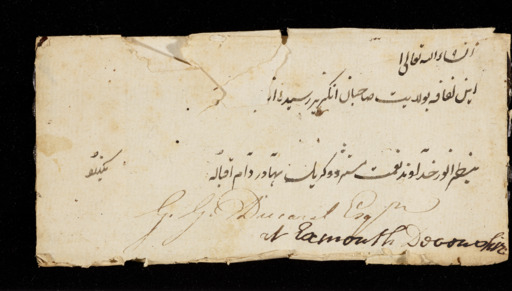 انشاءالله تعالی
این لفافه بولایت صاحبان انگریز رسیده
بنظر انور خداوند نعمت بهادر دام اقباله
G. G. Ducarel Esqr
at Exmouth Devonshire